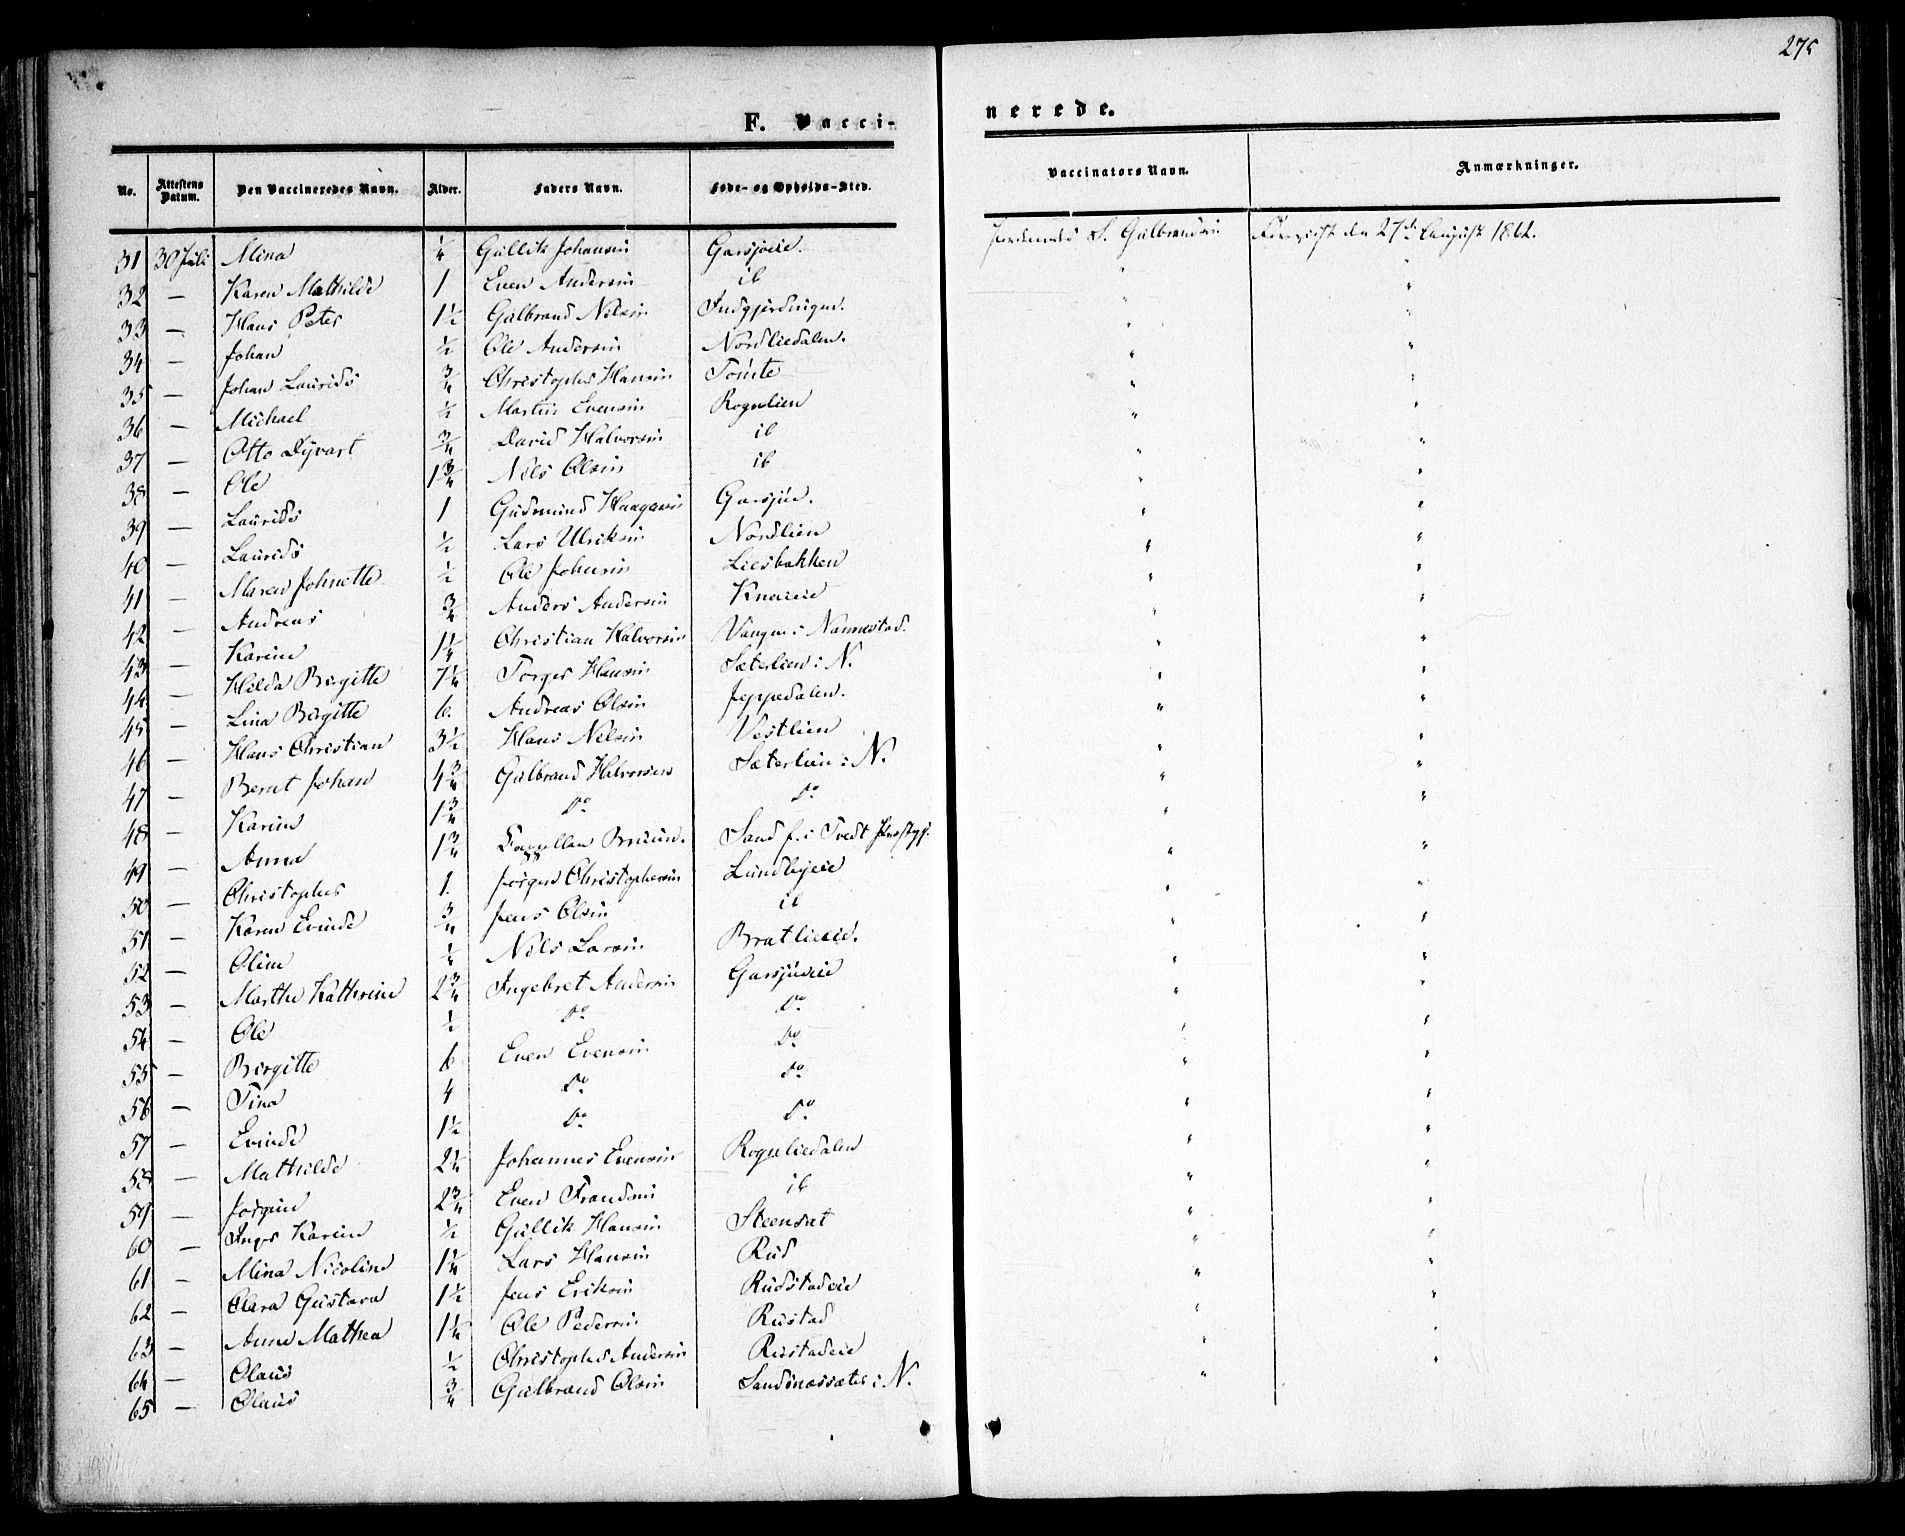 275
F. Vacci-
nerede.
No. Attestens Datum. Den Vaccineredes Navn. Alder. Faders Navn. Føde- og Opholds-Sted. Vaccinators Navn. Anmærkninger.
31 30 Juli Mina 1/4 Gullik Johansen Garsjøeie. S. Gulbrandsen den 27de August 1862.
32 — Karen Mathilde 1 Even Andersen ib " "
33 — Hans Peter 1 1/2 Gulbrand Nilsen Indgjerdingen. " "
34 — Johan 1/2 Ole Andersen Nordliedalen. " "
35 — Johan Laurids 3/4 Christopher Hansen Tømte " "
36 — Michael 1/2 Martin Evensen Rognlien " "
37 — Otto Dyvart 3/4 David Halvorsen ib " "
38 — Ole 1 3/4 Nils Olsen ib " "
39 — Laurids 1 Gudmund Haagensen Garsjøen. " "
40 — Laurids 1/2 Lars Ulriksen Nordlien " "
41 — Maren Johnette 1/2 Ole Johnsen Liesbakken " "
42 — Andreas 3/4 Anders Andersen Kneieie " "
43 — Karine 1 1/4 Christian Halvorsen Vangen i Nannestad. " "
44 — Hilda Birgitte 7 1/4 Torger Hansen Sæterlien i N. " "
45 — Lina Birgitte 6. Andreas Olsen Jeppedalen. " "
46 — Hans Christian 3 1/2 Hans Nilsen Vestlien " "
47 — Bernt Johan 4 3/4 Gulbrand Halvorsen Sæterlien i N. " "
48 — Karine 1 3/4 Do Do " "
49 — Anna 1 3/4 Cappellan Bruun. Sand f. i Tvedt Præstgj. " "
50 — Christopher 1. Jørgen Christophersen Lundbyeie " "
51 — Karen Evinde 3/4 Jens Olsen ib " "
52 — Oline 1/4 Nils Larsen Bratlieeie. " "
53 — Marthe Kathrine 2 3/4 Ingebret Andersen Garsjøeie " "
54 — Ole 1/2 Do Do " "
55 — Birgitte 6 Even Evensen Do " "
56 — Tina 4 Do Do " "
57 — Evinde 1 1/2 Do Do " "
58 — Mathilde 2 1/4 Johannes Evensen Rognliedalen " "
59 — Jørgen 2 3/4 Even Frandsen ib " "
60 — Inger Karine 1/2 Gullik Hansen Steensæt " "
61 — Mina Nicoline 1 1/4 Lars Hansen Rud " "
62 — Clara Gustava 1 1/2 Jens Eriksen Rudstadeie " "
63 — Anne Mathea 1 1/4 Ole Pedersen Rustad " "
64 — Olaus 1/2 Christopher Andersen Rustadeie " "
65 — Olaus 3/4 Gulbrand Olsen Sandsnessæter i N. "